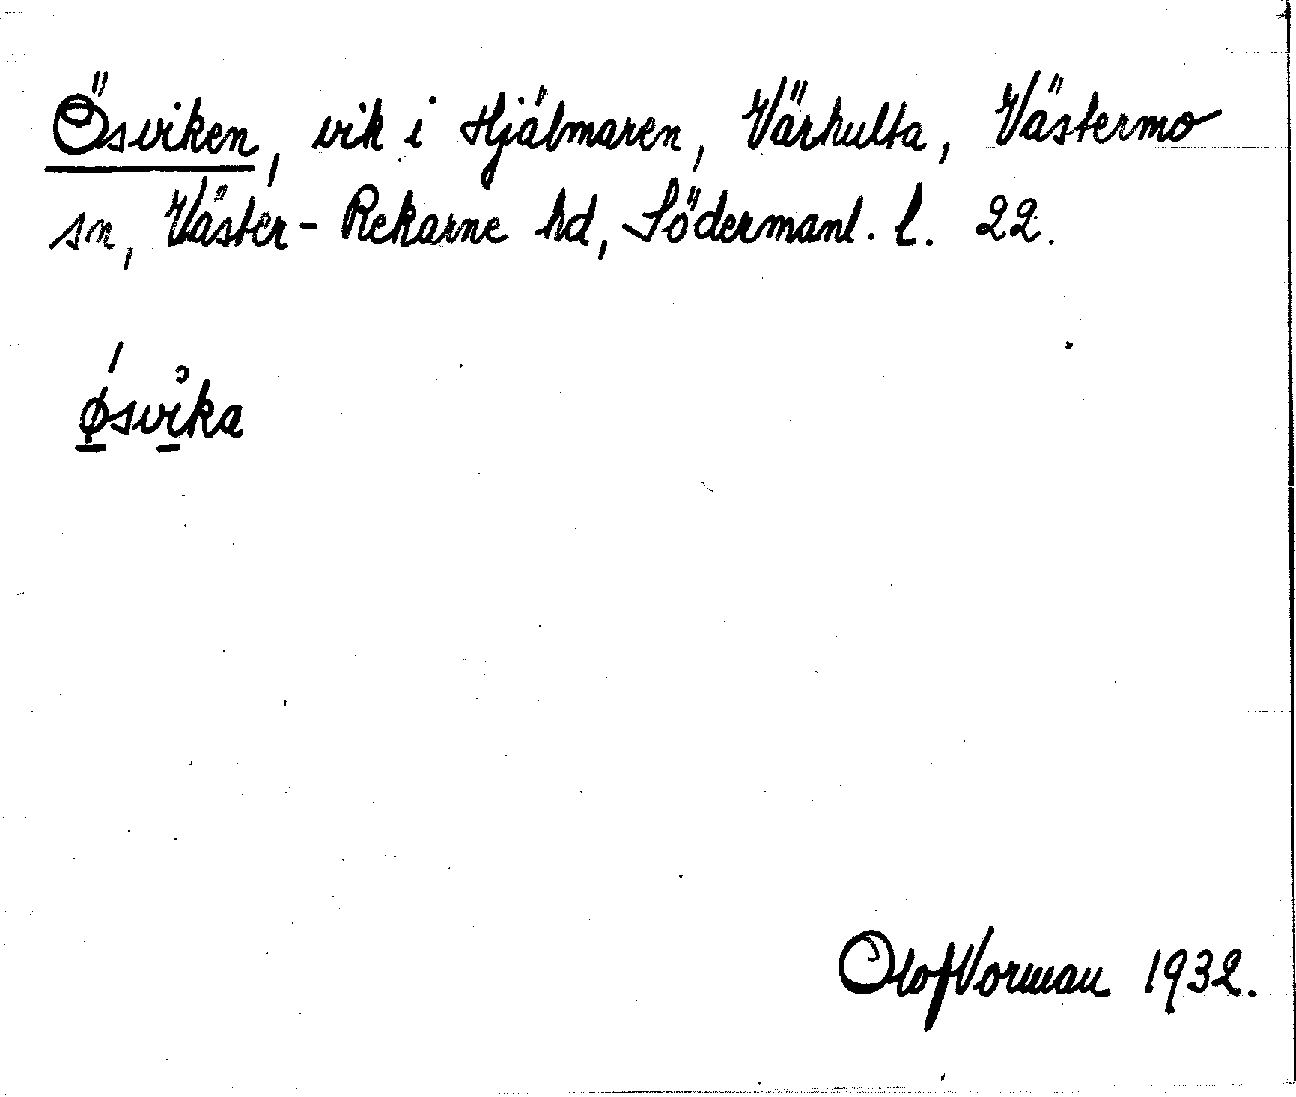 Ösviken, vik i Hjälmaren, Värhulta, Västermo
sn, Väster-Rekarne hd, Södermanl. l. 22.
Ǿsvika
Olof Vorman 1932.